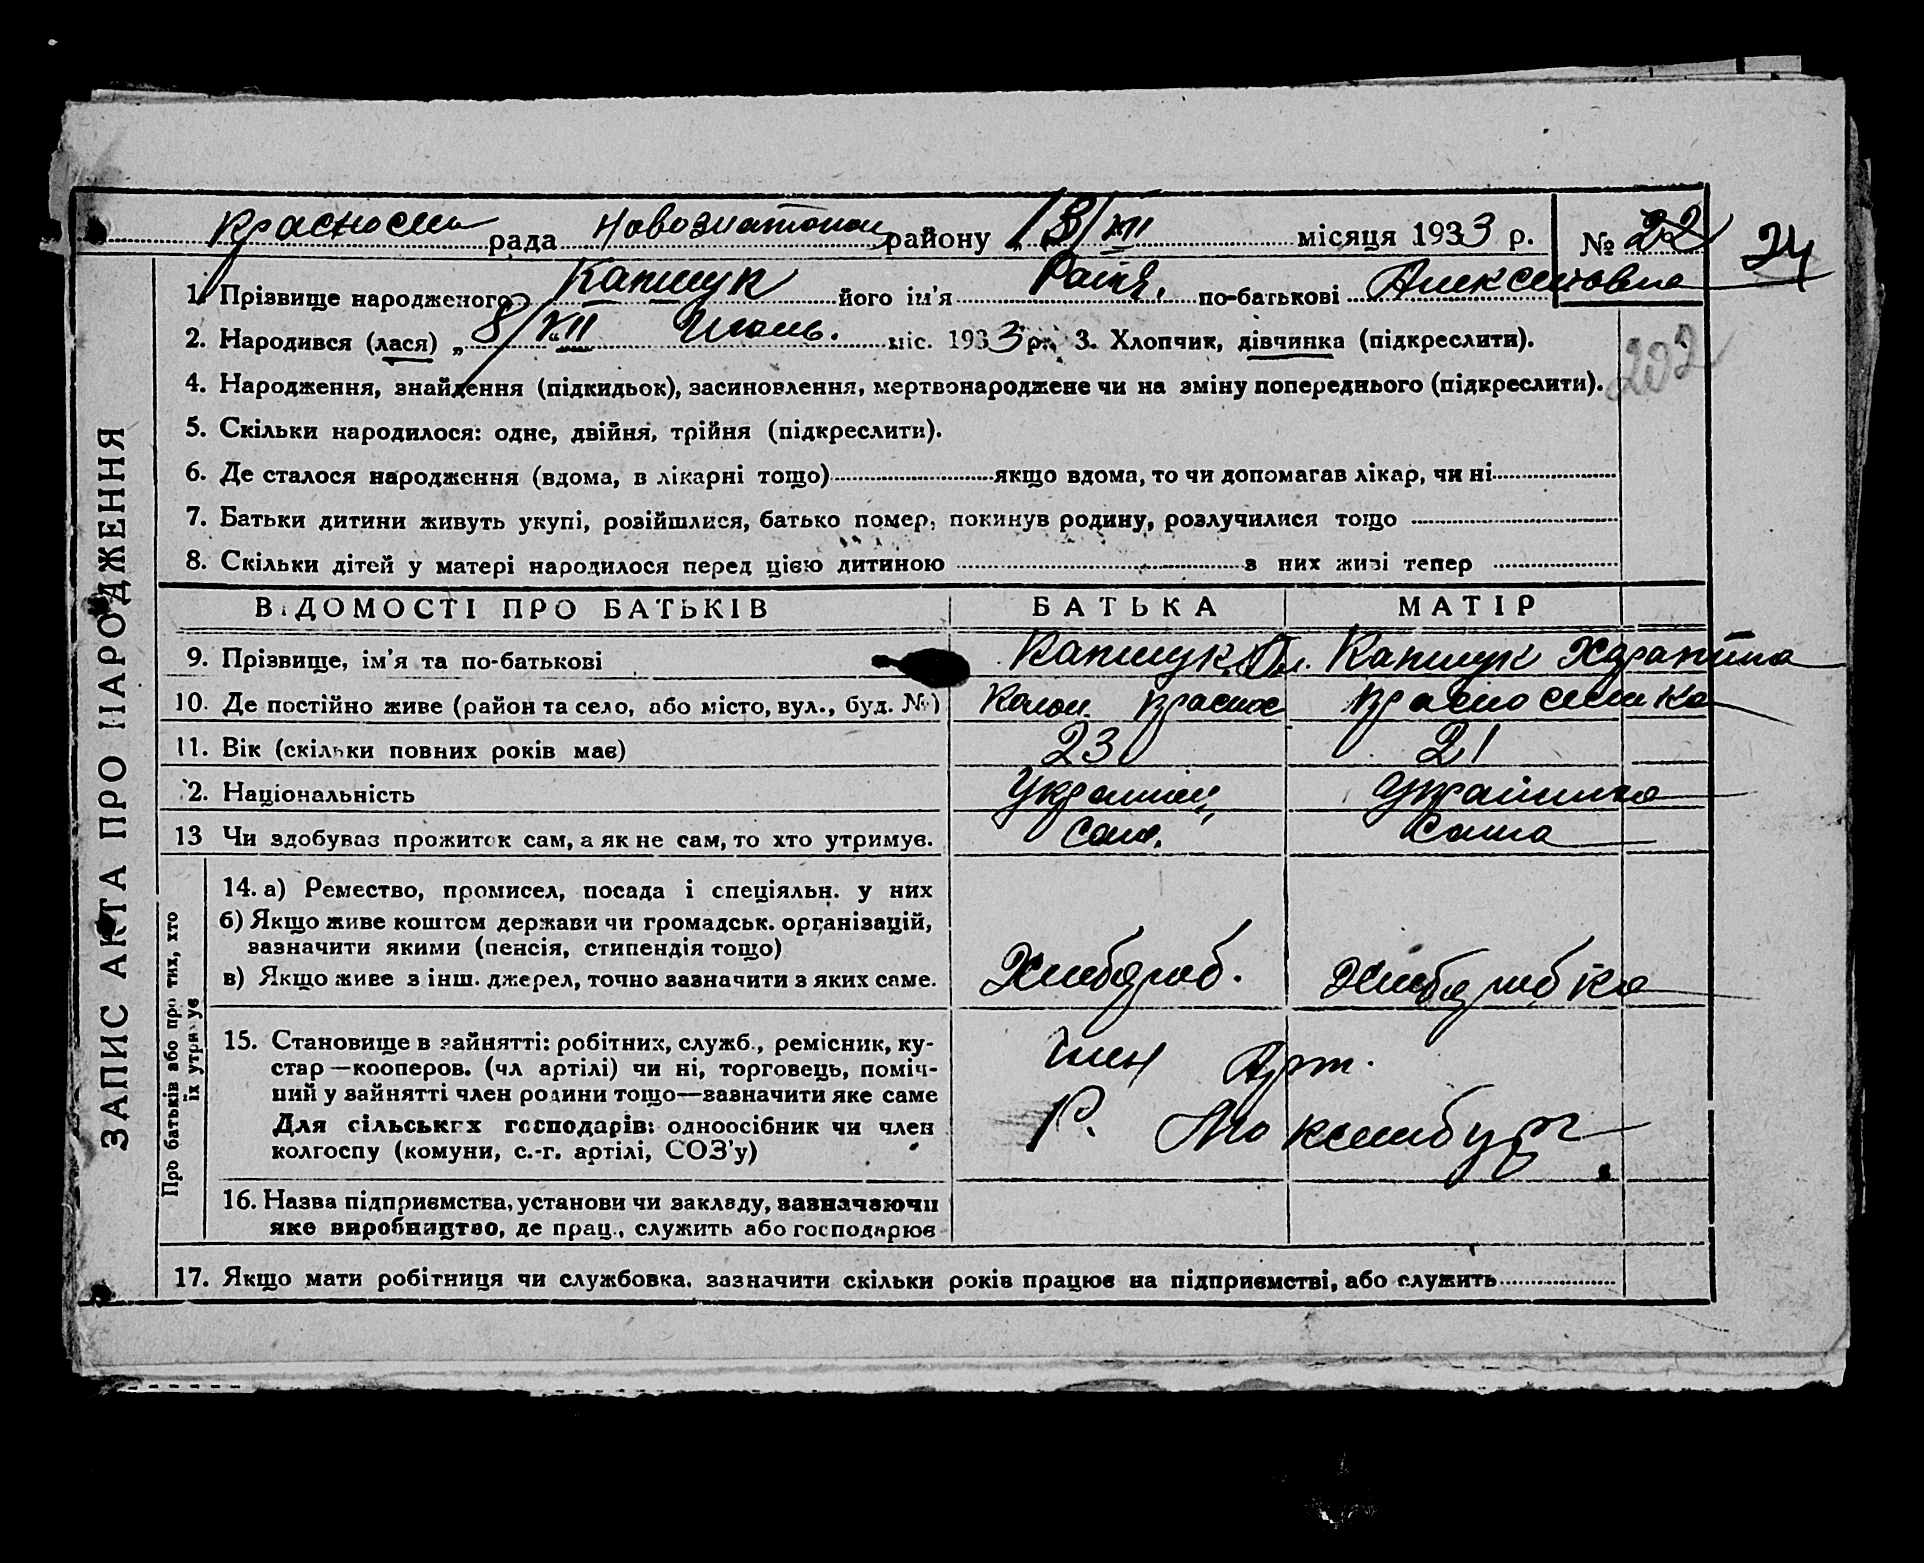 Красносель рада Новозлатопол району 13/XII місяця 1933 р. № 22 24
1. Прізвище народженого Капшук його ім'я Раїя. по-батькові Алексеювна
2. Народився (лася) „8/XII" міс. 1933 р. 3. Хлопчик, дівчинка (підкреслити).
202
4. Народження, знайдення (підкидьок), засиновлення, мертвонароджене чи на зміну попереднього (підкреслити).
5. Скільки народилося: одне, двійня, трійня (підкреслити).
6. Де сталося народження (вдома, в лікарні тощо) якщо вдома, то чи допомагав лікар, чи ні
7. Батьки дитини живуть укупі, розійшлися, батько помер, покинув родину, розлучилися тощо
8. Скільки дітей у матері народилося перед цією дитиною з них живі тепер
ЗАПИС АКТА ПРО НАРОДЖЕННЯ
ВІДОМОСТІ ПРО БАТЬКІВ БАТЬКА МАТІР
9. Прізвище, ім'я та по-батькові Капшук Ол. Капшук Харатина
10. Де постійно живе (район та село, або місто, вул., буд. №) Колон. Красносе Красноселівка
11. Вік (скільки повних років має) 23 21
12. Національність Україніц Українка
13 Чи здобуває прожиток сам, а як не сам, то хто утримує. Сам. Сама
Про батьків або про тих, хто їх утримує
14. а) Ремество, промисел, посада і спеціяльн. у них
б) Якщо живе коштом держави чи громадськ. організацій,
зазначити якими (пенсія, стипендія тощо)
в) Якщо живе з інш. джерел, точно зазначити з яких саме. Хлібороб. Хліборобка
15. Становище в зайнятті: робітник, служб., ремісник, ку-
стар—кооперов. (чл артілі) чи ні, торговець, поміч-
ний у зайнятті член родини тощо—зазначити яке саме
Для сільських господарів: одноосібник чи член
колгоспу (комуни, с.-г. артілі, СОЗ'у)
член Арт.
Р. Люксембург
16. Назва підприємства, установи чи закладу, зазначаючи
яке виробництво, де прац., служить або господарює
17. Якщо мати робітниця чи службовка, зазначити скільки років працює на підприємстві, або служить